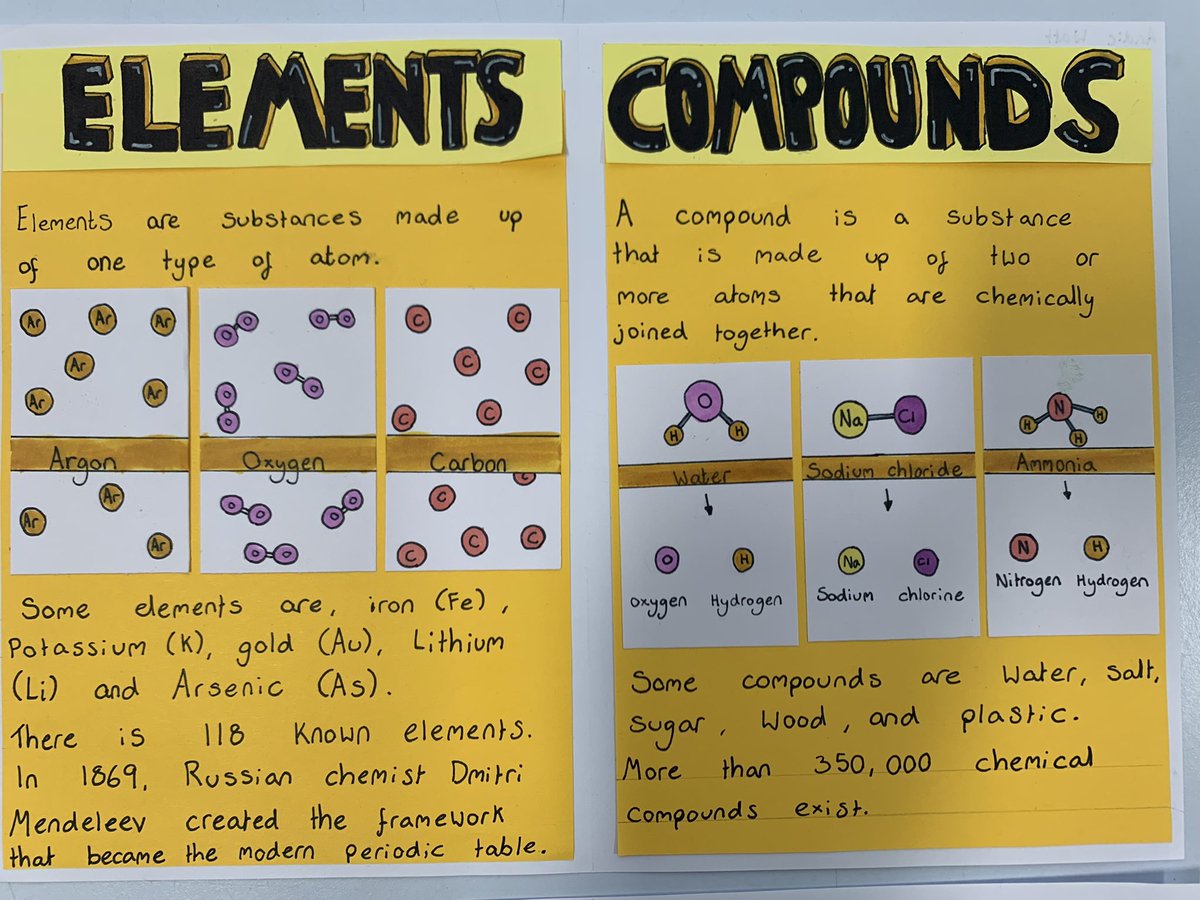 ELEMENTS
Elements are substances made up
of one type of atom.
Ar Ar Ar
Ar
Ar Ar
Argon
Ar
Ar
Ar
O O O O
O O
O O
Oxygen
O O O O
O O
C C
C C
C C
Carbon
C
C C
C
Some elements are, iron (Fe),
Potassium (K), gold (Au), Lithium
(Li) and Arsenic (As).
There is 118 known elements.
In 1869, Russian chemist Dmitri
Mendeleev created the framework
that became the modern periodic table.
COMPOUNDS
A compound is a substance
that is made up of two or
more atoms that are chemically
joined together.
O
H H
Water
O H
Oxygen Hydrogen
Na Cl
Sodium chloride
Na Cl
Sodium chlorine
N
H H H
Ammonia
N H
Nitrogen Hydrogen
Some compounds are Water, Salt,
Sugar, Wood, and plastic.
More than 350,000 chemical
compounds exist.